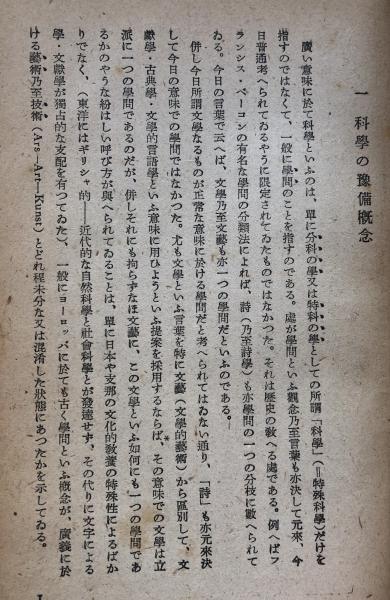 一 科學の豫備槪念
廣い意味に於て科學といふのは、單に分科の學又は特科の學としての所謂「科學」（＝特殊科學）だけを
指すのではなくて、一般に學問のことを指すのである。處が學問といふ觀念乃至言葉も亦決して元來、今
日普通考へられてゐるやうに限定されてゐたものではなかつた。それは歷史の敎へる處である。例へばフ
ランシス・ベーコンの有名な學問の分類法によれば、詩（乃至詩學）も亦學問の一つの分枝に數へられて
ゐる。今日の言葉で云へば、文學乃至文藝も亦一つの學問だといふのである。
併し今日所謂文學なるものが正常な意味に於ける學問だと考へられてはゐない通り、「詩」も亦元來決
して今日の意味での學問ではなかつた。尤も文學といふ言葉を特に文藝（文學的藝術）から區別して、文
獻學・古典學・文學的言語學といふ意味に用ひようといふ提案を採用するならば、その意味での文學は立
派に一つの學問であるのだが、併しそれにも拘らずなほ文藝に、この文學といふ如何にも一つの學問であ
るかのやうな紛はしい呼び方が與へられてゐることは、單に日本や支那の文化的敎養の特殊性によるばか
りでなく、（東洋にはギリシャ的——近代的な自然科學と社會科學とが發達せず、その代りに文字による
學・文獻學が獨占的な支配を有つてゐた）、一般にヨーロッパに於ても古く學問といふ槪念が、廣義に於
ける藝術乃至技術（Ars—Art—Kunst）とどれ程未分な又は混淆した狀態にあつたかを示してゐる。
1